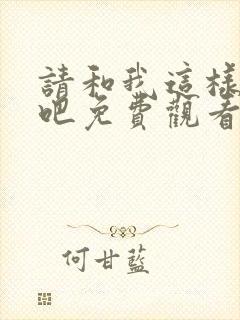 請和我這樣
吧免費觀看
何甘藍